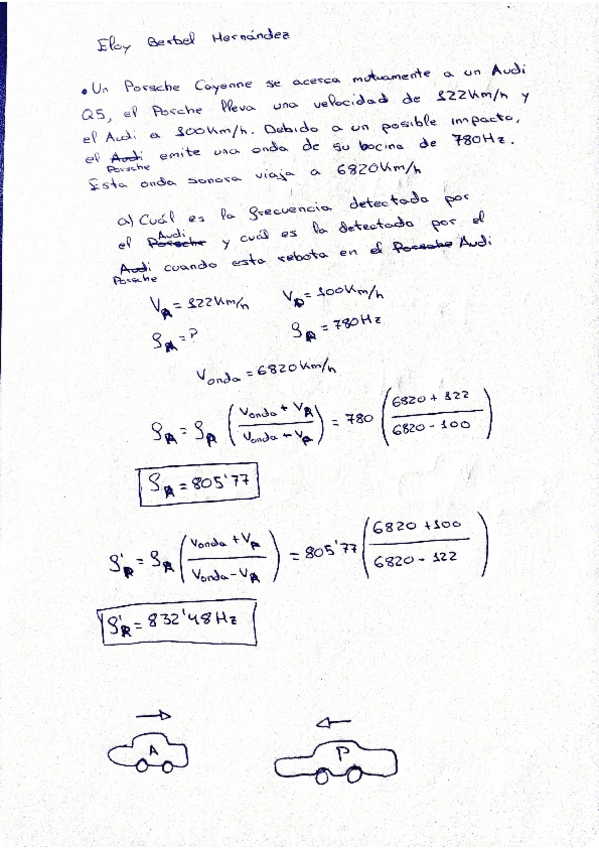 Eloy Berbel Hernández
• Un Porsche Cayenne se acerca mutuamente a un Audi
Q5, el Porche lleva una velocidad de 122Km/h y
el Audi a 100Km/h. Debido a un posible impacto,
el Audi Porsche emite una onda de su bocina de 780Hz.
Esta onda sonora viaja a 6820Km/h
a) Cuál es la frecuencia detectada por
el Porsche Audi y cuál es la detectada por el
Audi Porsche cuando esta rebota en el Porsche Audi
V_A = 122Km/h V_P = 100Km/h
f_A = ? f_P = 780Hz
V_onda = 6820Km/h
f_A = f_P (V_onda + V_A / V_onda - V_P) = 780 (6820 + 122 / 6820 - 100)
f_A = 805'77
f'_P = f_A (V_onda + V_P / V_onda - V_A) = 805'77 (6820 + 100 / 6820 - 122)
f'_P = 832'48Hz
A P